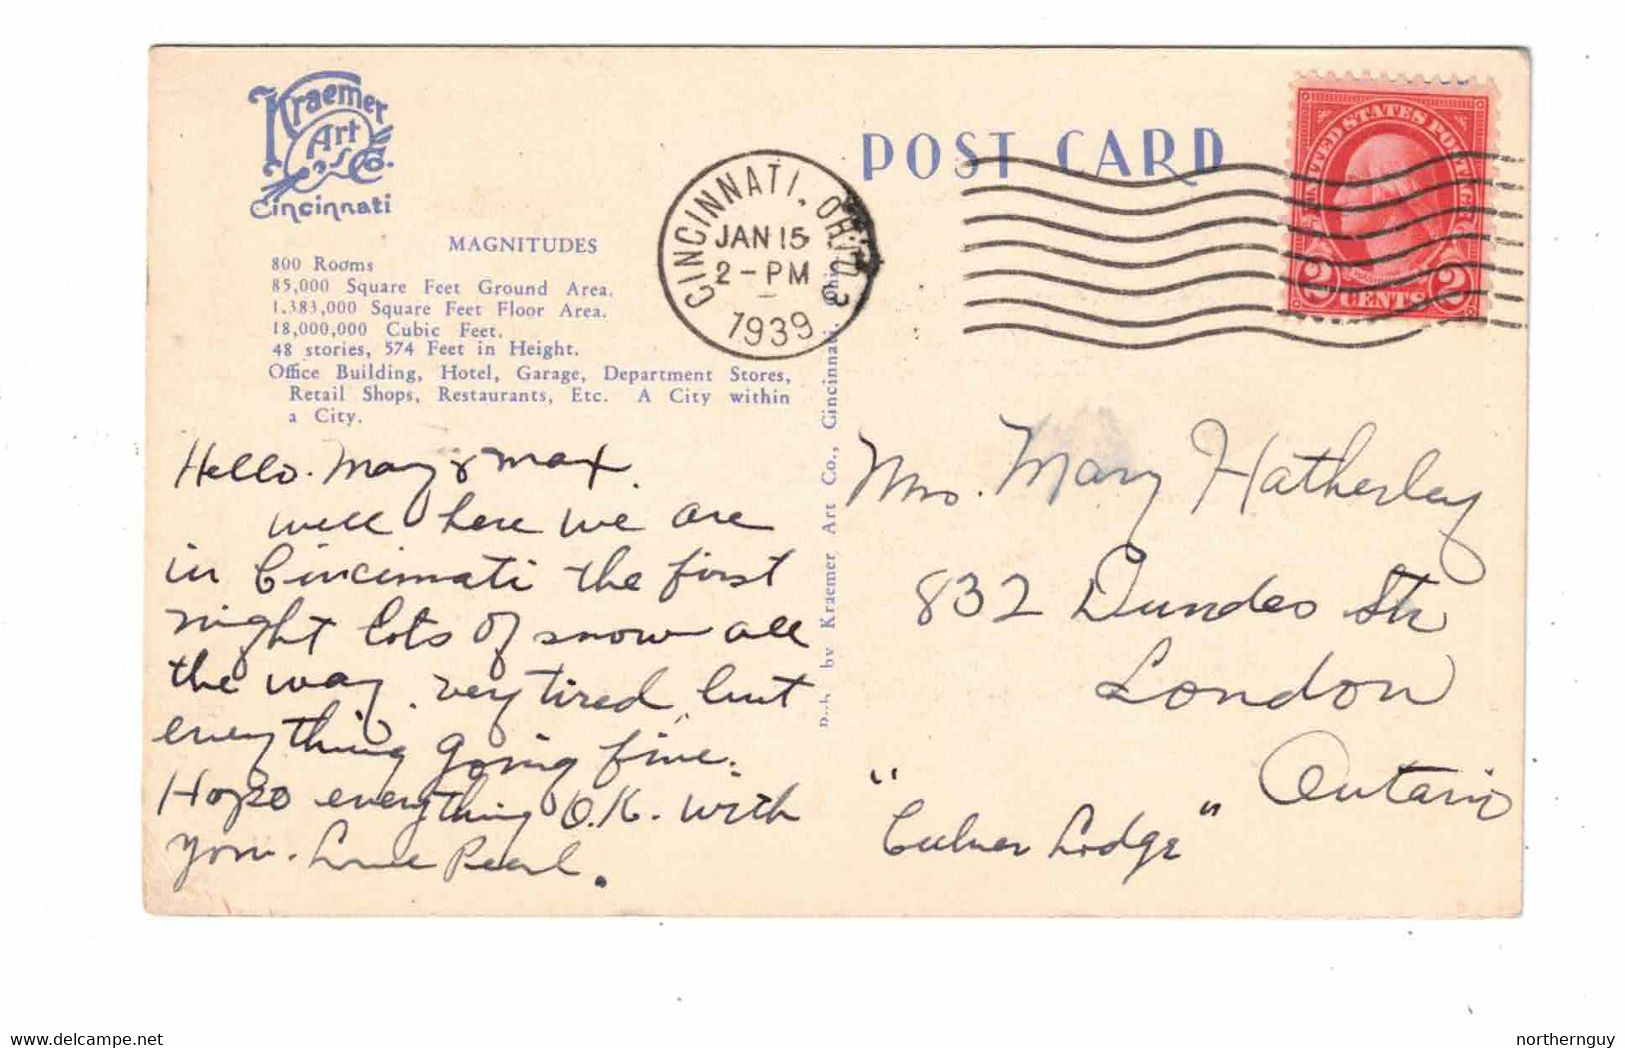 Kraemer
Art
Co.
Cincinnati
MAGNITUDES
800 Rooms
85,000 Square Feet Ground Area.
1,383,000 Square Feet Floor Area.
18,000,000 Cubic Feet.
48 stories, 574 Feet in Height.
Office Building, Hotel, Garage, Department Stores,
Retail Shops, Restaurants, Etc. A City within
a City.
Hello. May & Max.
well here we are
in Cincinnati the first
night lots of snow all
the way. very tired but
everything going fine.
Hope everything O.K. with
you. Love Pearl.
by Kraemer Art Co., Cincinnati, Ohio
POST CARD
CINCINNATI, OHIO
JAN 15
2 - PM
1939
3
UNITED STATES POSTAGE
2 CENTS 2
Mrs. Mary Hatherley
832 Dundas St
London
Ontario
"Culver Lodge"
www.delcampe.net
northernguy